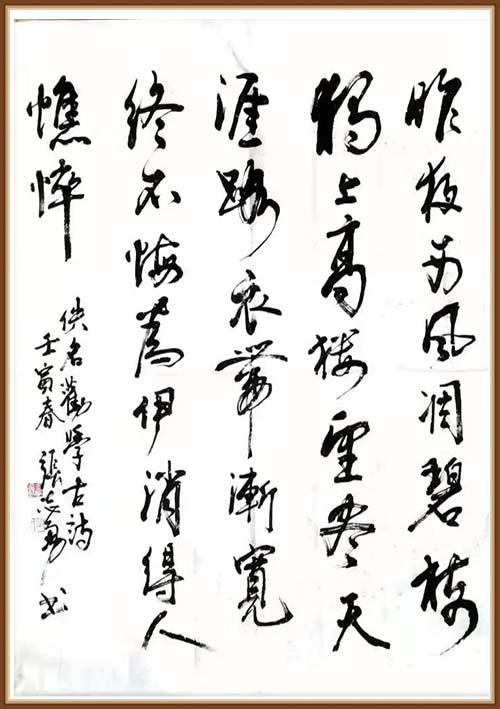 昨夜西风凋碧樹
獨上高樓望尽天
涯路衣带漸寬
终不悔為伊消得人
憔悴
佚名勸学古詩
壬寅春 張志勇书